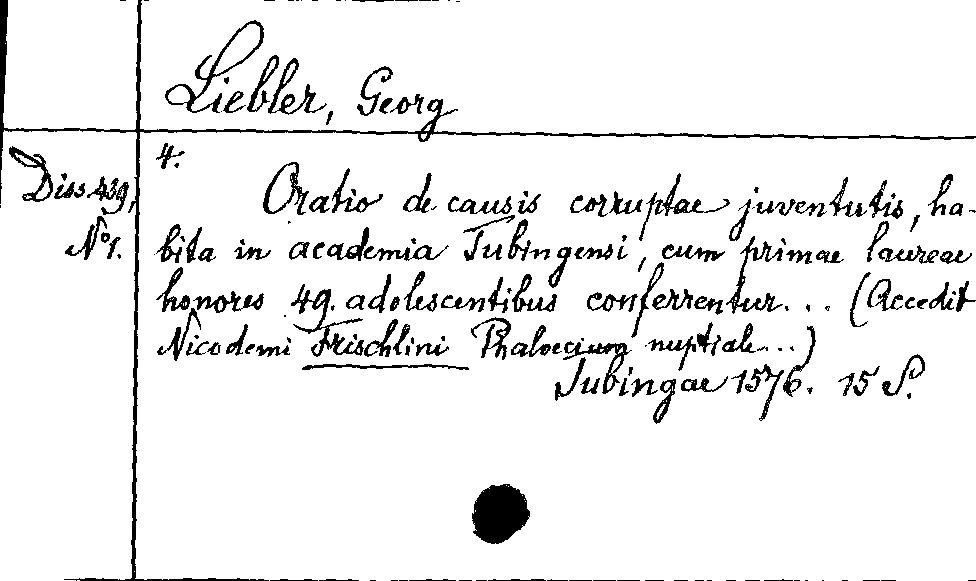 Liebler, Georg
4.
Diss. 439,
No 1.
Oratio de causis corruptae juventutis, ha-
bita in academia Tubingensi, cum primae laureae
honores 49. adolescentibus conferrentur... (Accedit
Nicodemi Frischlini Phaloecium nuptiale...)
Tubingae 1576. 15 S.